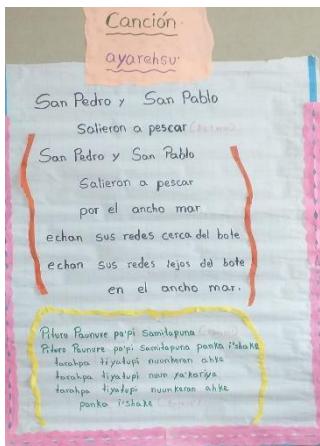 Canción
ayarehsu.
San Pedro y San Pablo
Salieron a pescar
San Pedro y San Pablo
Salieron a pescar
por el ancho mar
echan sus redes cerca del bote
echan sus redes lejos del bote
en el ancho mar.
Pituro Paunure pa'pi samitapuna
Pituro Paunure pa'pi samitapuna panka i'shake
tarahpa tiyatupi nuunkeran ahke
tarahpa tiyatupi nuun ya'kariya
tarahpa tiyatupi nuunkaran ahke
panka i'shake